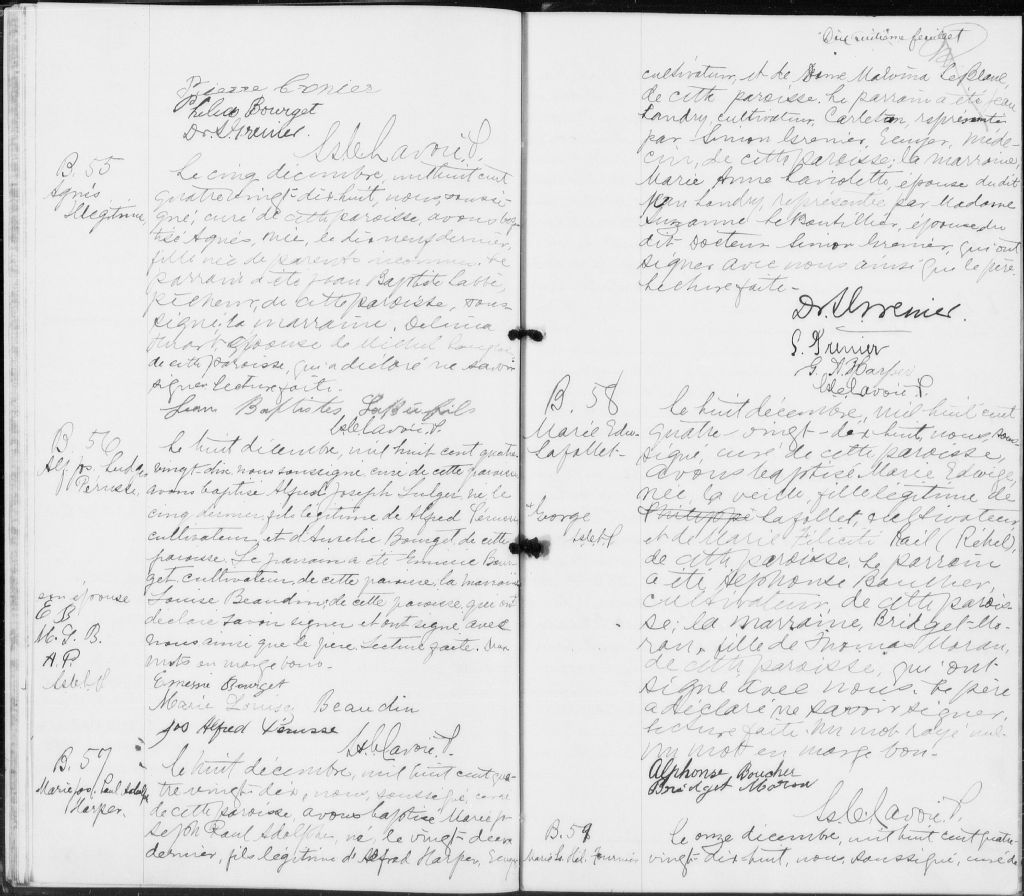 Pierre Cronier
Philias Bourget
Dr. S. Grenier.
Lavoie P.
B. 55
Agnès
Illegitime
Le cinq décembre, mil huit cent
quatre vingt-dix huit, nous, soussi-
gné, curé de cette paroisse, avons bap-
tisé Agnès, née, le dix neuf dernier,
fille née de parents inconnus. Le
parrain a été Jean Baptiste Labbé,
pêcheur, de cette paroisse, sous
signé; la marraine, Delima
épouse de Michel
de cette paroisse, qui a déclaré ne savoir
signer. Lecture faite.
Jean Baptistes fils
Lavoie P.
B. 56
Alf. Jos. Ludger
Perusse.
Le huit décembre, mil huit cent quatre
vingt dix, nous soussigné curé de cette paroisse
avons baptisé Alfred Joseph Ludger né le
cinq dernier, fils légitime de Alfred Pérusse
cultivateur, et d'Aurelie Bourget de cette
paroisse. Le parrain a été Emmie Bour-
get, cultivateur, de cette paroisse, la marraine
Louise Beaudin, de cette paroisse, qui ont
declaré savoir signer et ont signé avec
nous ainsi que le père. Lecture faite. Deux
mots en marge bons.
son épouse
E B
M. L. B.
A. P.
Emessie Bourget
Marie Louise Beaudin
Jos Alfred Pérusse
Lavoie P.
B. 57
Marie Jos. Paul Adolphe
Harper.
Le huit décembre, mil huit cent qua-
tre vingt-dix, nous, soussigné, curé
de cette paroisse, avons baptisé Marie Jo-
seph Paul Adolphe, né, le vingt-deux
dernier, fils légitime d'Alfred Harper, Ecuyer
Dix huitième feuillet
cultivateur, et de Dame Malvina LeBlanc
de cette paroisse. Le parrain a été Jean
Landry, cultivateur, Carleton représenté
par Simon Grenier, Ecuyer, méde-
cin, de cette paroisse; la marraine,
Marie Anne Laviolette, épouse du dit
Jean Landry, représentée par Madame
Suzanne Le Boutillier, épouse du
dit Docteur Simon Grenier, qui ont
signer avec nous ainsi que le père.
Lecture faite.
Dr. S. Grenier.
S. Grenier
G. A. Harper
Lavoie P.
B. 58
Marie Edw.
Lafollet
Le huit décembre, mil huit cent
quatre-vingt-dix huit, nous, sous
signé, curé de cette paroisse,
avons baptisé Marie Edwige,
née, la veille, fille légitime de
Philippe Lafollet, cultivateur
George
et de Marie Félicité Hail (Rehel),
de cette paroisse. Le parrain
a été Alphonse Boucher,
cultivateur, de cette parois-
se; la marraine, Bridget Mo-
ran, fille de Thomas Moran,
de cette paroisse, qui ont
signé avec nous. Le père
a déclaré ne savoir signer.
Lecture faite. Un mot rayé nul
un mot en marge bon.
Alphonse Boucher
Bridget Moran
Lavoie P.
B. 59
Le onze décembre, mil huit cent quatre
vingt-dix huit, nous, soussigné, curé de